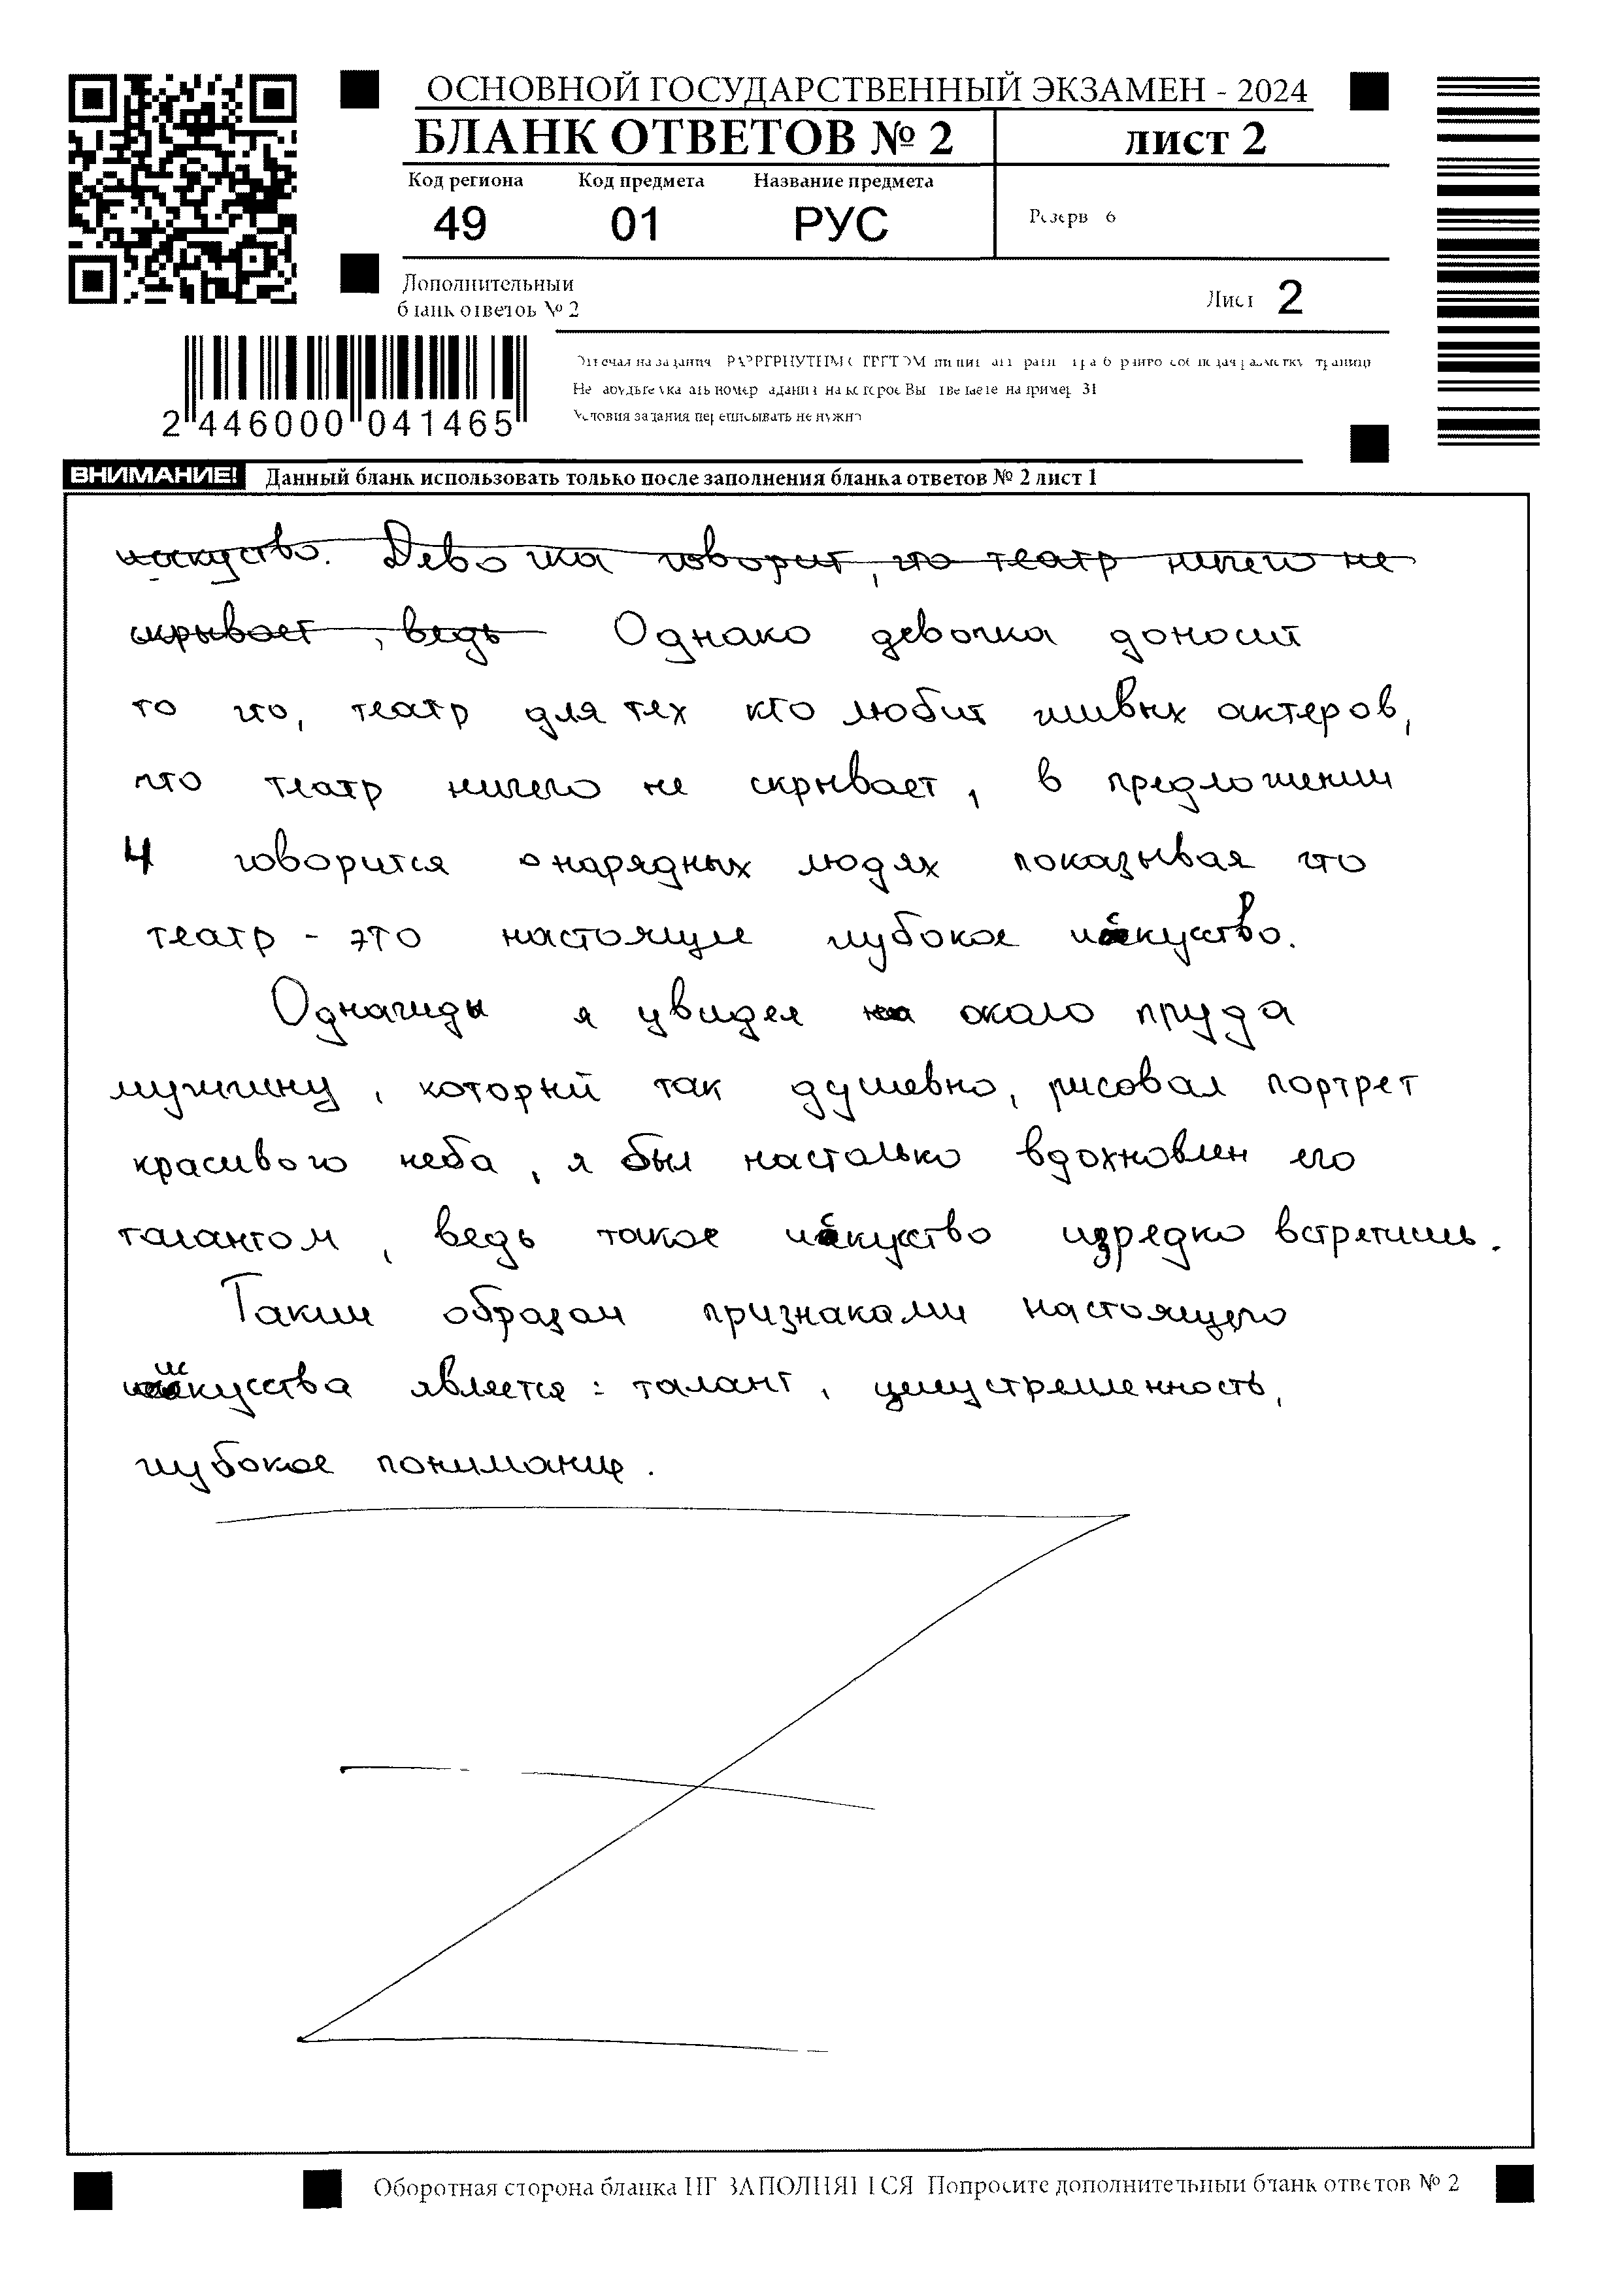 ОСНОВНОЙ ГОСУДАРСТВЕННЫЙ ЭКЗАМЕН - 2024
БЛАНК ОТВЕТОВ № 2
лист 2
Код региона Код предмета Название предмета
49 01 РУС
Резерв 6
Дополнительный
бланк ответов № 2
Лист 2
2 446000 041465
Условия задания переписывать не нужно
ВНИМАНИЕ! Данный бланк использовать только после заполнения бланка ответов № 2 лист 1
искуство. Девочка говорит, что театр ничего не
скрывает, ведь Однако девочка доносит
то что, театр для тех кто любит живых актеров,
что театр ничего не скрывает, в предложении
4 говорится о нарядных людях показывая что
театр - это настоящие глубокое искусство.
Однажды я увидел на около пруда
мужчину, который так душевно, рисовал портрет
красивого неба, я был настолько вдохновлен его
талантом, ведь такое искусство изредко встретишь.
Таким образом признаками настоящего
искусства является: талант, целустремленность,
глубокое понимание.
Оборотная сторона бланка НЕ ЗАПОЛНЯЕТСЯ Попросите дополнительный бланк ответов № 2